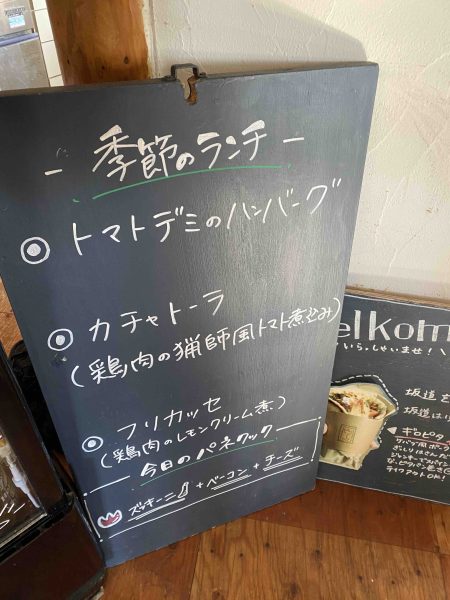 - 季節のランチ -
◉ トマトデミのハンバーグ
◉ カチャトーラ
(鶏肉の猟師風トマト煮込み)
◉ フリカッセ
(鶏肉のレモンクリーム煮)
今日のパネクック
ズッキーニ + ベーコン + チーズ
elkom
いらっしゃいませ!
坂道
坂道は